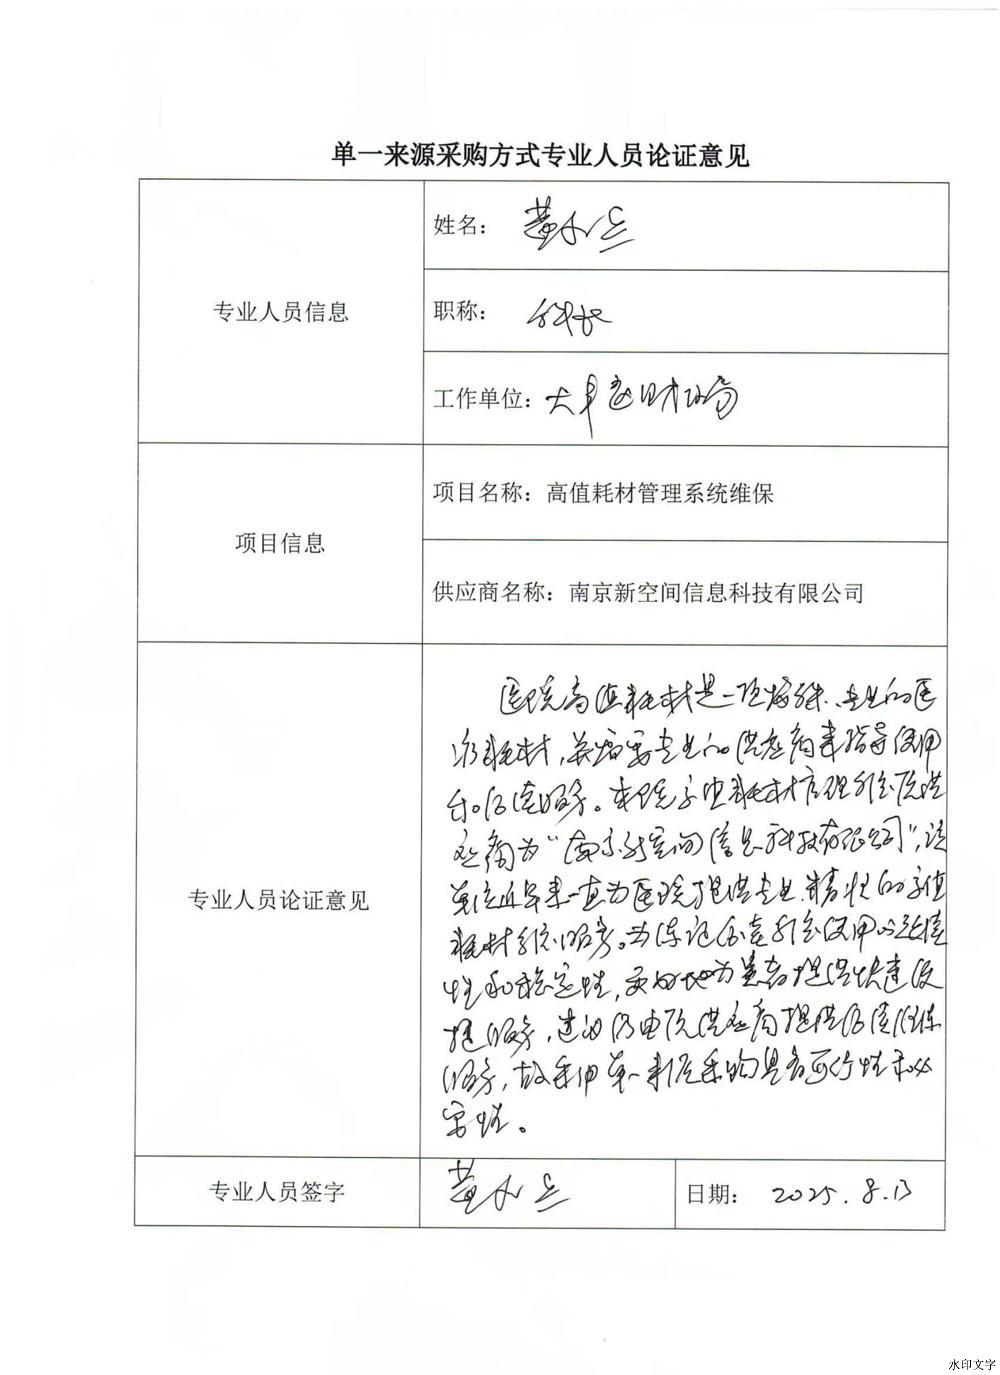 单一来源采购方式专业人员论证意见
专业人员信息
姓名：
职称：科长
工作单位：大丰区财政局
项目信息
项目名称：高值耗材管理系统维保
供应商名称：南京新空间信息科技有限公司
专业人员论证意见
医院高值耗材是一项特殊、专业的医
疗耗材，并需要专业的供应商来指导使用
和后续服务。本院高值耗材管理系统原供
应商为“南京新空间信息科技有限公司”，该
单位近年来一直为医院提供专业、精准的高值
耗材系统服务。为保证医院系统使用的连续
性和稳定性，更好地为患者提供快速便
捷服务，建议仍由原供应商提供后续维保
服务，故采用单一来源采购具有可行性和必
要性。
专业人员签字
日期：2025.8.13
水印文字